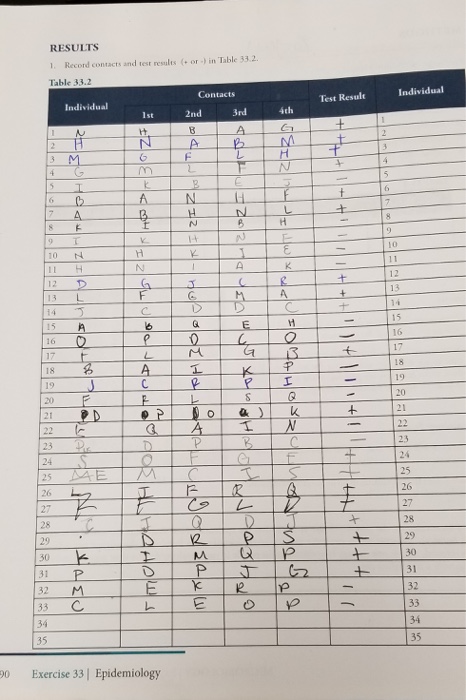 RESULTS
1. Record contacts and test results (+ or -) in Table 33.2.
Table 33.2
Individual Contacts Test Result Individual
1st 2nd 3rd 4th
1 N H B A G + 1
2 H N A B M + 2
3 M G F L H + 3
4 G M L F N + 4
5 I K B E J - 5
6 B A N H F + 6
7 A B H N L + 7
8 F I N B H - 8
9 I K H N F - 9
10 N H K J E - 10
11 H N I A K - 11
12 D G J C B + 12
13 L F G M A + 13
14 J C D D C + 14
15 A B Q E H - 15
16 O P D C O - 16
17 F L M G B + 17
18 B A I K P - 18
19 J C R P I - 19
20 F F L S Q - 20
21 D P O Q K + 21
22 Q A I N - 22
23 D P B C - 23
24 S O F G F + 24
25 E M C I S + 25
26 L I F R + 26
27 E G L + 27
28 J Q D J + 28
29 D R P S + 29
30 K I M Q P + 30
31 P D P J G + 31
32 M E K R P - 32
33 C L E O P - 33
34 34
35 35
90 Exercise 33 | Epidemiology